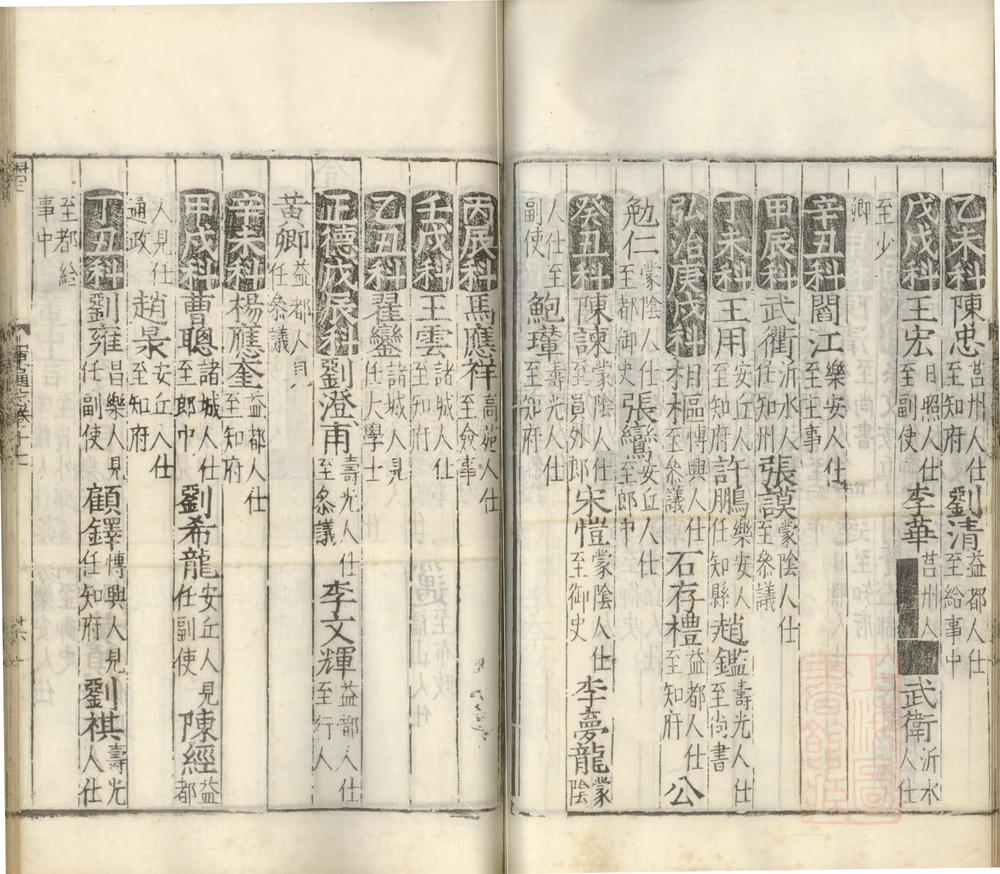 乙未科陳忠莒州人仕至知府劉清益都人仕至給事中
戊戌科王宏日照人仕至副使李華莒州人武衛沂水人仕
至少卿
辛丑科閻江樂安人仕至主事
甲辰科武衢沂水人任知州張謨蒙陰人仕至叅議
丁未科王用安丘人仕至知府許鵬樂安人任知縣趙鑑壽光人仕至尚書
弘治庚戌科李松日照博興人仕至叅議石存禮益都人仕至知府公
勉仁蒙陰人仕至都御史張鸞安丘人仕至郎中
癸丑科陳諫蒙陰人仕至員外郎宋愷蒙陰人仕至御史李夢龍蒙陰
人仕至副使鮑𤩽壽光人仕至知府
丙辰科馬應祥高苑人仕至僉事
壬戌科王雲諸城人仕至知府
乙丑科翟鑾諸城人見任大學士
正德戊辰科劉澄甫壽光人仕至叅議李文輝益都人仕至行人
黃卿益都人見任叅議
辛未科楊應奎益都人仕至知府
甲戌科曹聰諸城人仕至郎中劉希龍安丘人見任副使陳經益都
人見仕通政趙㫤安丘人仕至知府
丁丑科劉雍昌樂人見任副使顧鐸博興人見任知府劉祺壽光人仕
至都給事中